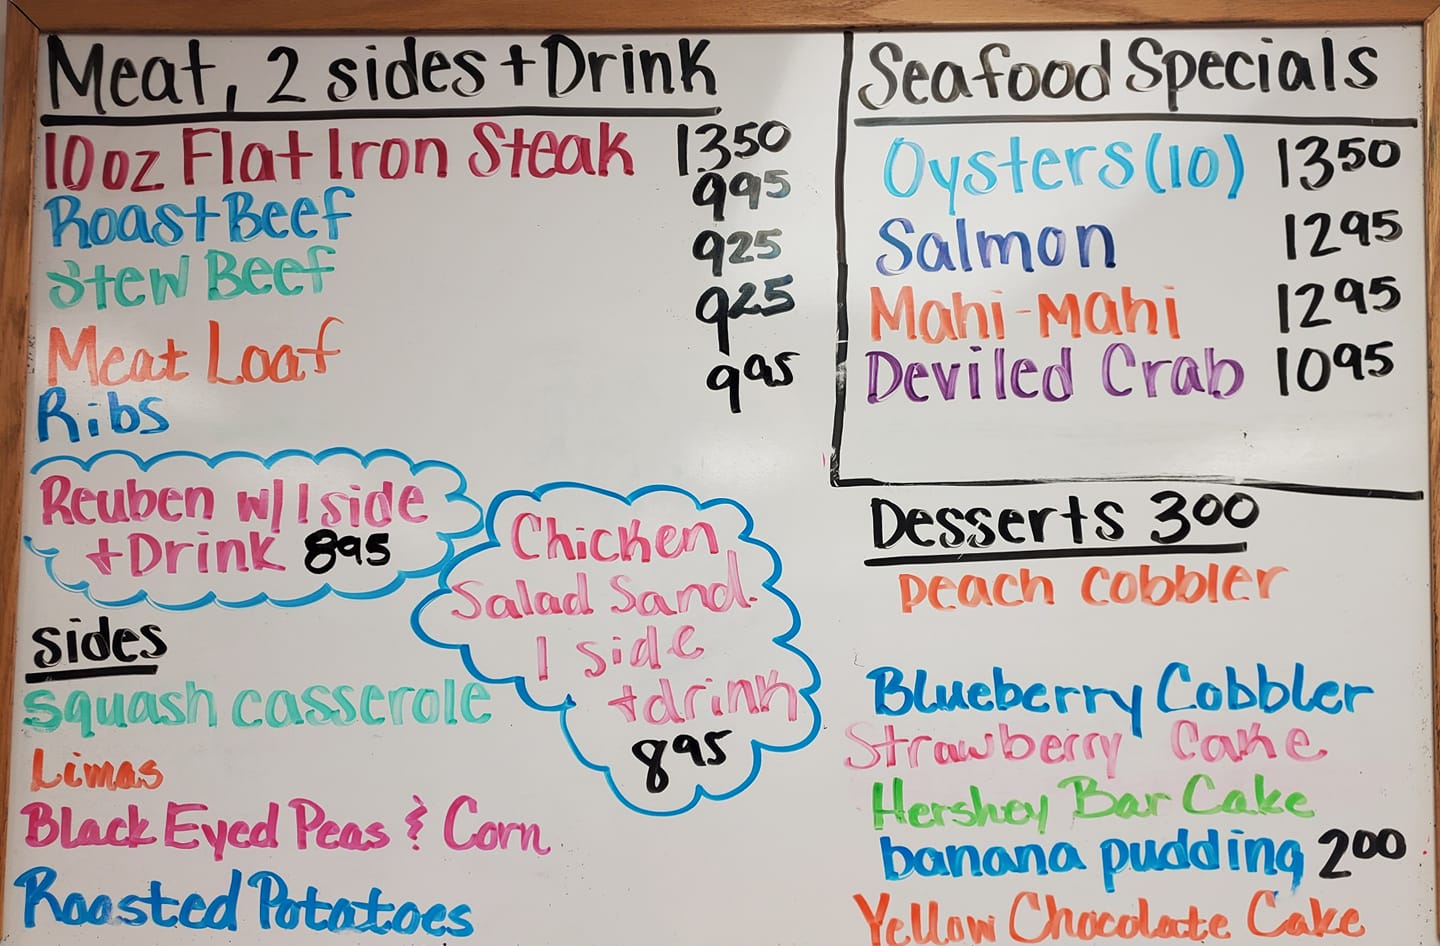 Meat, 2 sides + Drink
10oz Flat Iron Steak 1350
Roast Beef 995
Stew Beef 925
Meat Loaf 925
Ribs 995
Reuben w/ 1 side
+ Drink 895
Chicken
Salad Sand.
1 side
+ drink
895
sides
squash casserole
Limas
Black Eyed Peas & Corn
Roasted Potatoes
Seafood Specials
Oysters (10) 1350
Salmon 1295
Mahi-Mahi 1295
Deviled Crab 1095
Desserts 300
peach cobbler
Blueberry Cobbler
Strawberry Cake
Hershey Bar Cake
banana pudding 200
Yellow Chocolate Cake